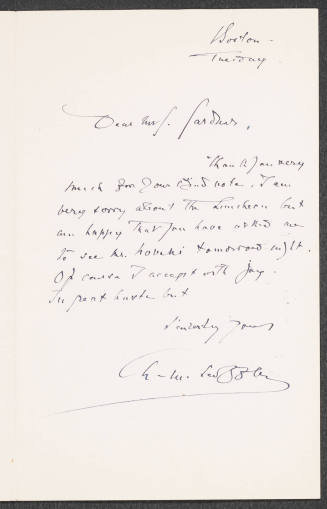 Boston -
Tuesday
Dear Mrs. Gardner,
Thank you very
much for your kind note. I am
very sorry about the luncheon but
am happy that you have asked me
to see Mr. tomorrow night.
Of course I accept with joy.
In great haste but
Sincerely yours
Ch. M. Loeffler